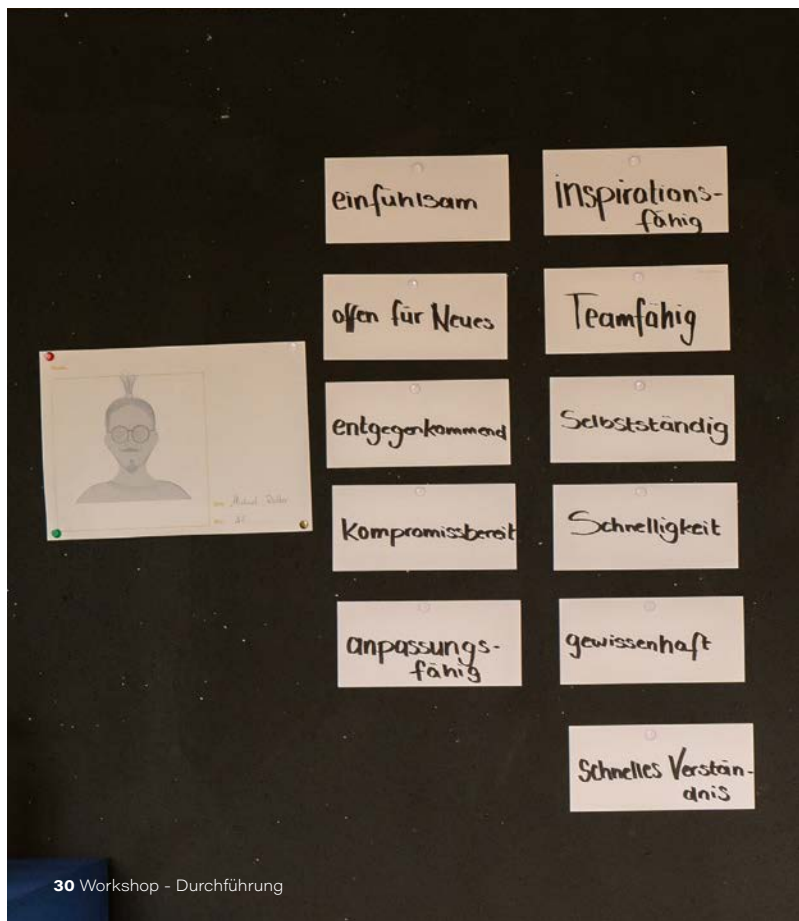 einfühlsam
offen für Neues
entgegenkommend
kompromissbereit
anpassungs-
fähig
inspirations-
fähig
Teamfähig
Selbstständig
Schnelligkeit
gewissenhaft
Schnelles Verstän-
dnis
Michael
30 Workshop - Durchführung